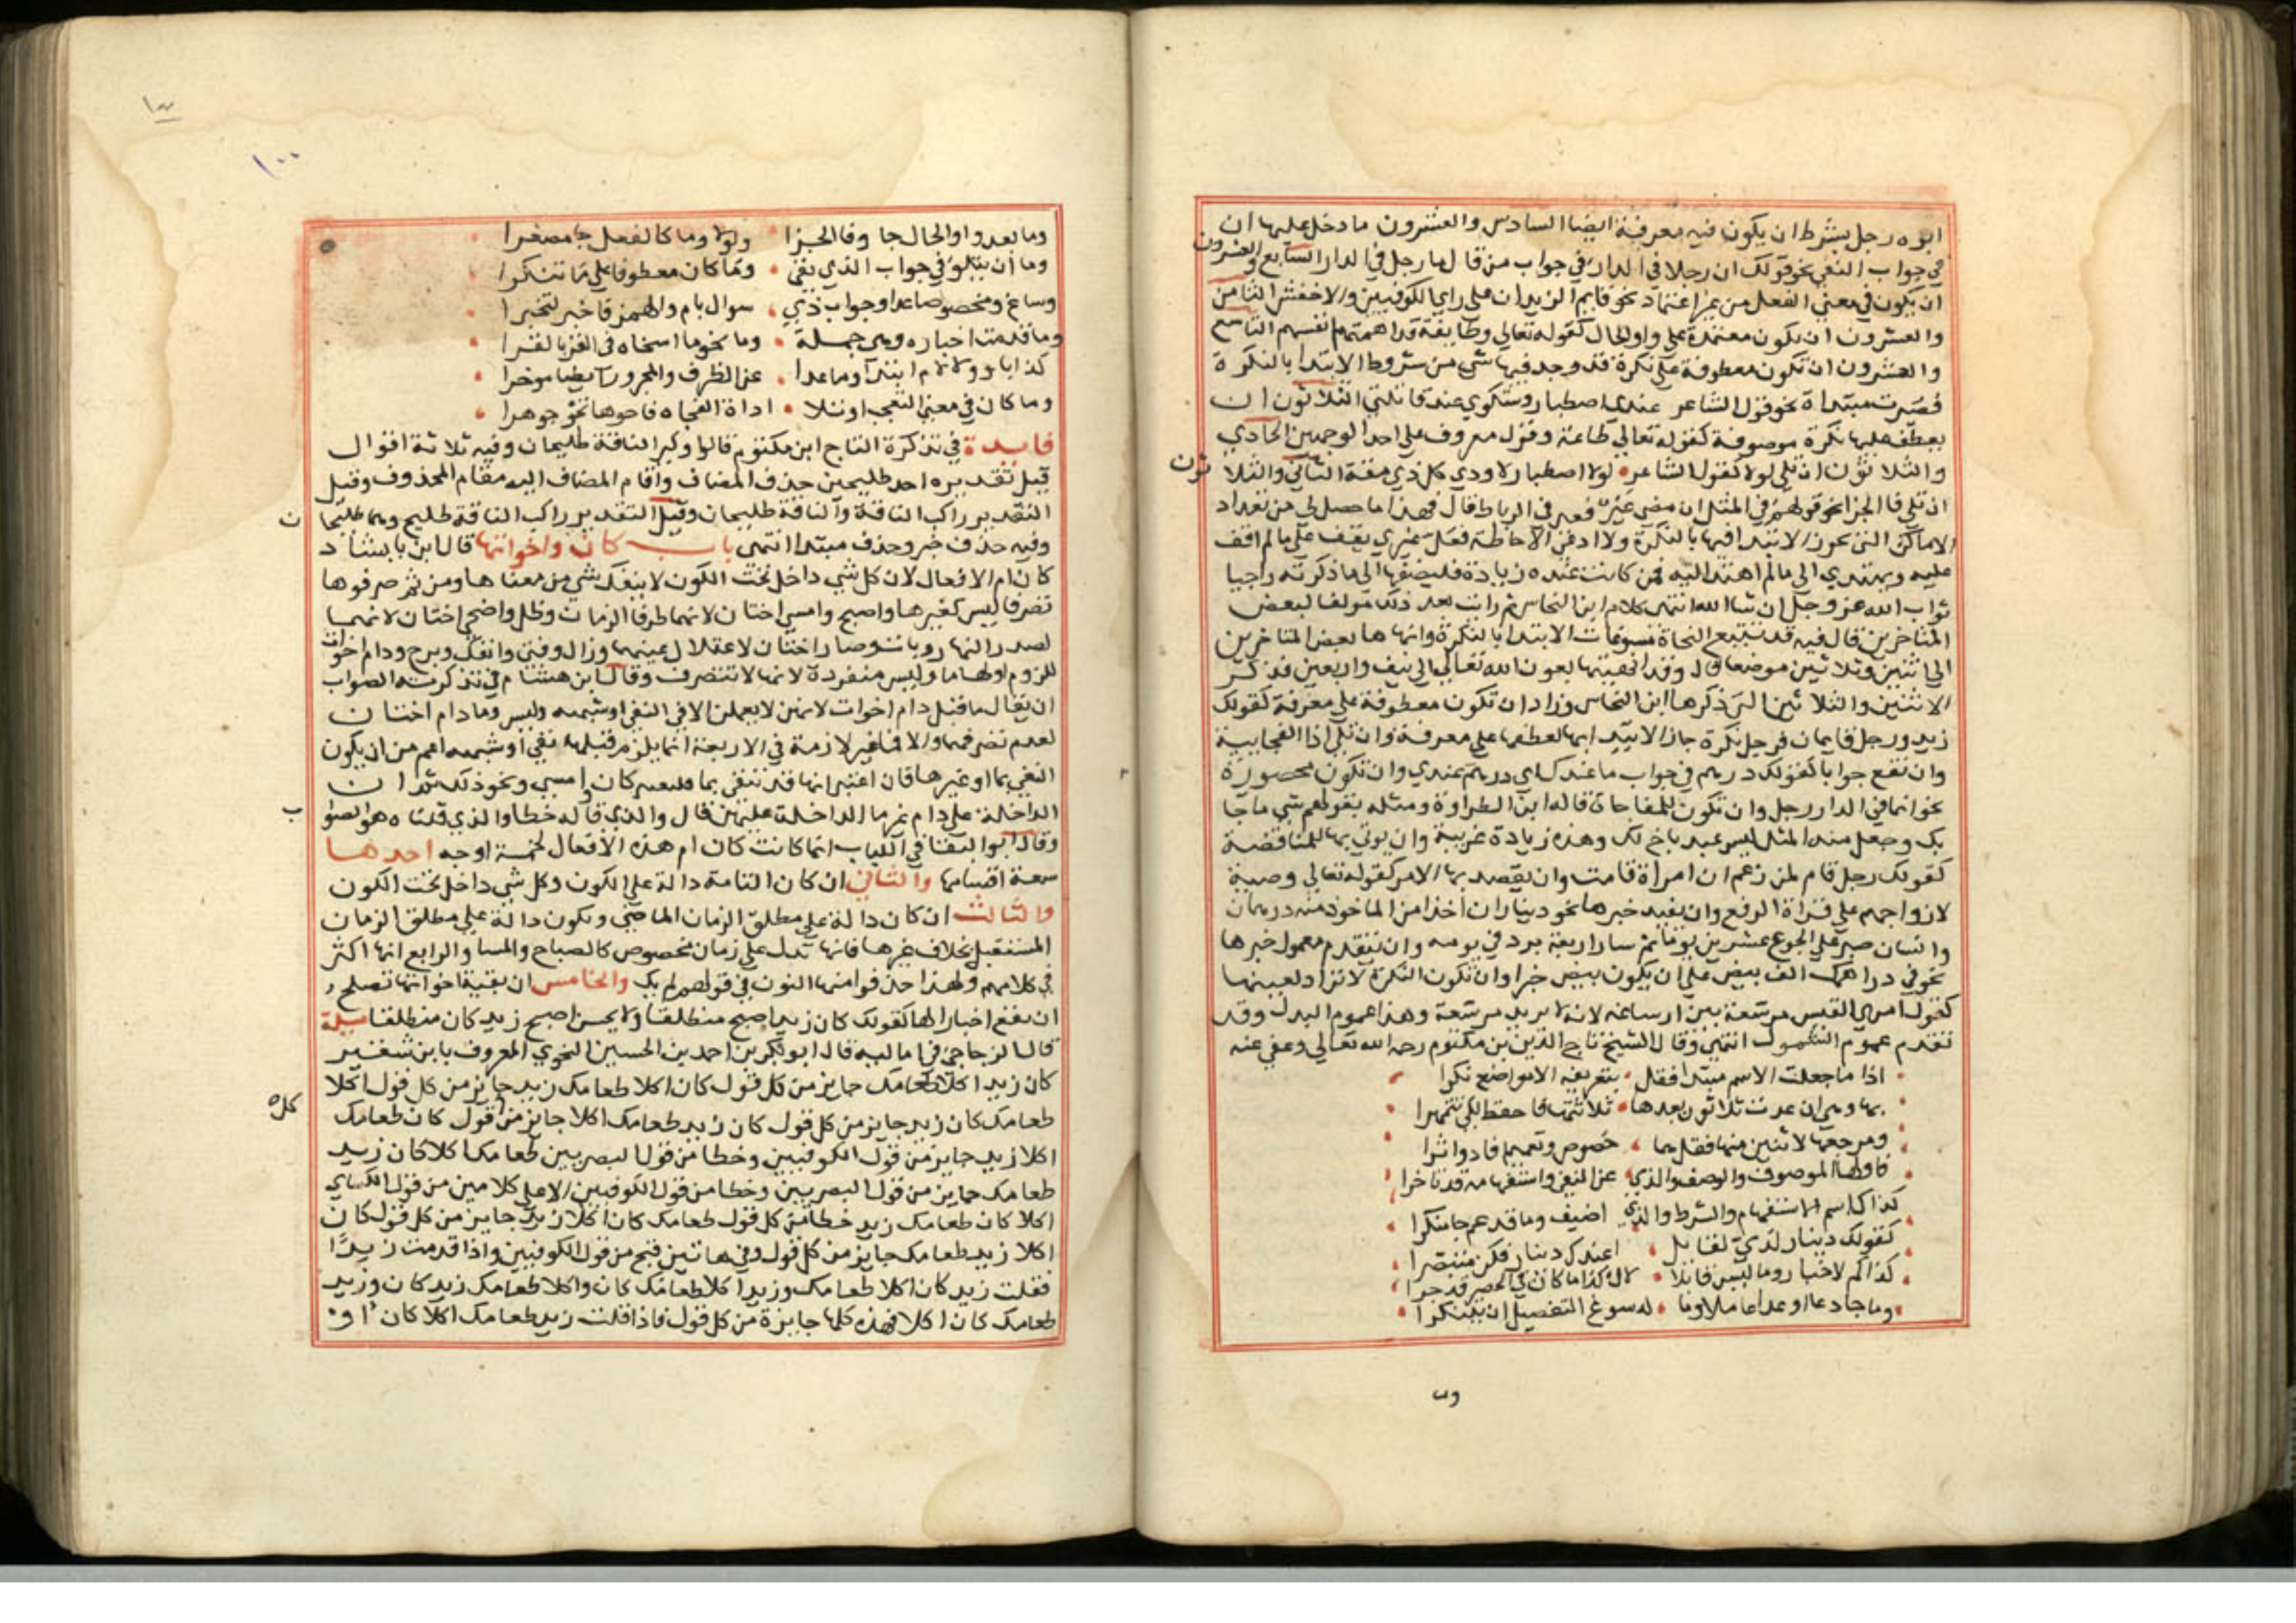 ابوه رجل بشرط ان يكون فيه معرفة ايضا السادس والعشرون ما دخل عليها ان
في جواب النفي نحو قولك ان رجلا في الدار في جواب من قال ما رجل في الدار السابع والعشرون
ان يكون في معني الفعل من غير اعتماد نحو قايم الزيدان علي راي الكوفيين والاخفش الثامن
والعشرون ان يكون معتمدة علي واو الحال كقوله تعالي وطايفة قد اهمتهم انفسهم التاسع
والعشرون ان تكون معطوفة علي نكرة قد وجد فيها شي من شروط الابتدا بالنكرة
فصيرت مبتداة نحو قول الشاعر عندي اصطبار وشكوي عند قاتلتي الثلاثون ان
يعطف عليها نكرة موصوفة كقوله تعالي طاعة وقول معروف علي احد الوجهين الحادي
والثلاثون ان تلي لولا كقول الشاعر لولا اصطبار لاودي كل ذي مقة الثاني والثلاثون
ان تلي فا الجزا نحو قولهم في المثل ان مضي عير فعير في الرباط قال فهذا ما حصل لي من تعداد
الاماكن التي يجوز الابتدا فيها بالنكرة ولا ادعي الاحاطة فعل غيري يقف علي ما لم اقف
عليه ويهتدي الي ما لم اهتد اليه فمن كانت عنده زيادة فليضفها الي ما ذكرته راجيا
ثواب الله عز وجل ان شا الله انتهي كلام ابن النحاس ثم رايت بعد ذلك مولفا لبعض
المتاخرين قال فيه قد تتبع النحاة مسوغات الابتدا بالنكرة وانهاها بعض المتاخرين
الي اثنين وثلاثين موضعا قال وقد انهيتها بعون الله تعالي الي نيف واربعين فذكر
الاثنين والثلاثين التي ذكرها ابن النحاس وزاد ان تكون معطوفة علي معرفة كقولك
زيد ورجل قايمان فرجل نكرة جاز الابتدا بها لعطفها علي معرفة وان تلي اذا الفجايية
وان تقع جوابا كقولك درهم في جواب ما عندك اي درهم عندي وان تكون محصورة
نحو انما في الدار رجل وان تكون للمفاجاة قاله ابن الطراوة ومثله بقولهم شي ما جا
بك وجعل منه المثل ليس عبد باخ لك وهذه زيادة غريبة وان يوتي بها للمناقضة
كقولك رجل قام لمن زعم ان امراة قامت وان يقصد بها الامر كقوله تعالي وصية
لازواجهم علي قراة الرفع وان يفيد خبرها نحو ديناران اخذا من الماخوذ منه درهمان
وانسان صبر علي الجوع عشرين يوما ثم سار اربعة برد في يومه وان يتقدم معمول خبرها
نحو في دراهمك الف بيض علي ان يكون بيض خبرا وان تكون النكرة لا تراد لعينها
كقول امري القيس مرسعة بين ارساغه لانه لا يريد مرسعة وهذا عموم البدل وقد
تقدم عموم الشمول انتهي وقال الشيخ تاج الدين بن مكتوم رحمه الله تعالي وعفي عنه
اذا ما جعلت الاسم مبتدا فقل بتعريفه الا مواضع نكرا
بها وهي ان عدت ثلاثون بعدها ثلاثتها فاحفظ لكي تتمهرا
ومرجعها لاثنين منها فقل هما خصوص وتعميم فاد واثرا
فاولها الموصوف والوصف والذي عن النفي واستفهامه قد تاخرا
كذاك اسم الاستفهام والشرط والذي اضيف وما قد عم جا منكرا
كقولك دينار لدي لقايل اعندك دينار فكن متبصرا
كذاكم لاخبار وما ليس قابلا لال وكذا ما كان في الحصر قد جرا
وما جا دعا او عدا عاملا وما له سوغ التفصيل ان يتنكرا
وما
١٠٠
وما بعد واو الحال جا وفا الجزا ولولا وما كالفعل جا مصغرا
وما ان يتلو في جواب الذي نفي وما كان معطوفا علي ما تنكرا
وساغ ومخصوصا عدا وجواب ذي سوال بام والهمز فاخبر لتخبرا
وما قدمت اخباره وهي جملة وما نحو ما اسخاه في القر بالقرا
كذا ما ولا لام ابتدا وما عدا عن الظرف والمجرور ايضا موخرا
وما كان في معني التعجب او تلا اداة الفجاه فاحوها نحو جوهرا
فايدة في تذكرة التاج ابن مكتوم قالوا راكب الناقة طليحان وفيه ثلاثة اقوال
قيل تقديره احد طليحين حذف المضاف واقام المضاف اليه مقام المحذوف وقيل
التقدير راكب الناقة والناقة طليحان وقيل التقدير راكب الناقة طليح وهما طليحان
وفيه حذف خبر وحذف مبتدا انتهي باب كان واخواتها قال ابن بابشاد
كان ام الافعال لان كل شي داخل تحت الكون لا ينفك شي من معناها ومن ثم صرفوها
تصرفا ليس لغيرها واصبح وامسي اختان لانهما طرفا الزمان وظل واضحي اختان لانهما
لصدر النهار وبات وصار اختان لاعتلال عينهما وزال وفتي وانفك وبرح ودام اخوات
للزوم اولها ما وليس منفردة لانها لا تتصرف وقال ابن هشام في تذكرته الصواب
ان يقال ما قبل دام اخوات لانهن لا يعملن الا في النفي او شبهه وليس وما دام اختان
لعدم تصرفهما والا فما غير لازمة في الاربعة انما يلزم قبلها نفي او شبهه اعم من ان يكون
النفي بما او غيرها فان اعتبر انها قد تنفي بما فليعتبر كان وامسي ونحو ذلك ثم ان
الداخلة علي دام غير ما الداخلة عليهن قال والذي قاله خطا والذي قلناه هو الصواب
وقال ابو البقا في اللباب انما كانت كان ام هذه الافعال لخمسة اوجه احدها
سعة اقسامها والثاني ان كان التامة دالة علي الكون وكل شي داخل تحت الكون
والثالث ان كان دالة علي مطلق الزمان الماضي ويكون دالة علي مطلق الزمان
المستقبل بخلاف غيرها فانها تدل علي زمان مخصوص كالصباح والمسا والرابع انها اكثر
في كلامهم ولهذا حذفوا منها النون في قولهم لم يك والخامس ان بقية اخواتها تصلح
ان تقع اخبارا لها كقولك كان زيد اصبح منطلقا ولا يحسن اصبح زيد كان منطلقا مسيلة
قال الزجاجي في اماليه قال ابو بكر بن احمد بن الحسين النحوي المعروف بابن شقير
كان زيد اكلا طعامك جايز من كل قول كان اكلا طعامك زيد جايز من كل قول اكلا
طعامك كان زيد جايز من كل قول كان زيد طعامك اكلا جايز من كله قول كان طعامك
اكلا زيد جايز من قول الكوفيين وخطا من قول البصريين طعامك اكلا كان زيد
طعامك جايز من قول البصريين وخطا من قول الكوفيين الا علي كلامين من قول الكساي
اكلا كان طعامك زيد خطا من كل قول طعامك كان اكلا زيد جايز من كل قول كان
اكلا زيد طعامك جايز من كل قول وفي هاتين قبح من قول الكوفيين واذا قدمت زيدا
فقلت زيد كان اكلا طعامك وزيد اكلا طعامك كان واكلا طعامك زيد كان وزيد
طعامك كان اكلا فهذه كلها جايزة من كل قول فاذا قلت زيد طعامك اكلا كان او